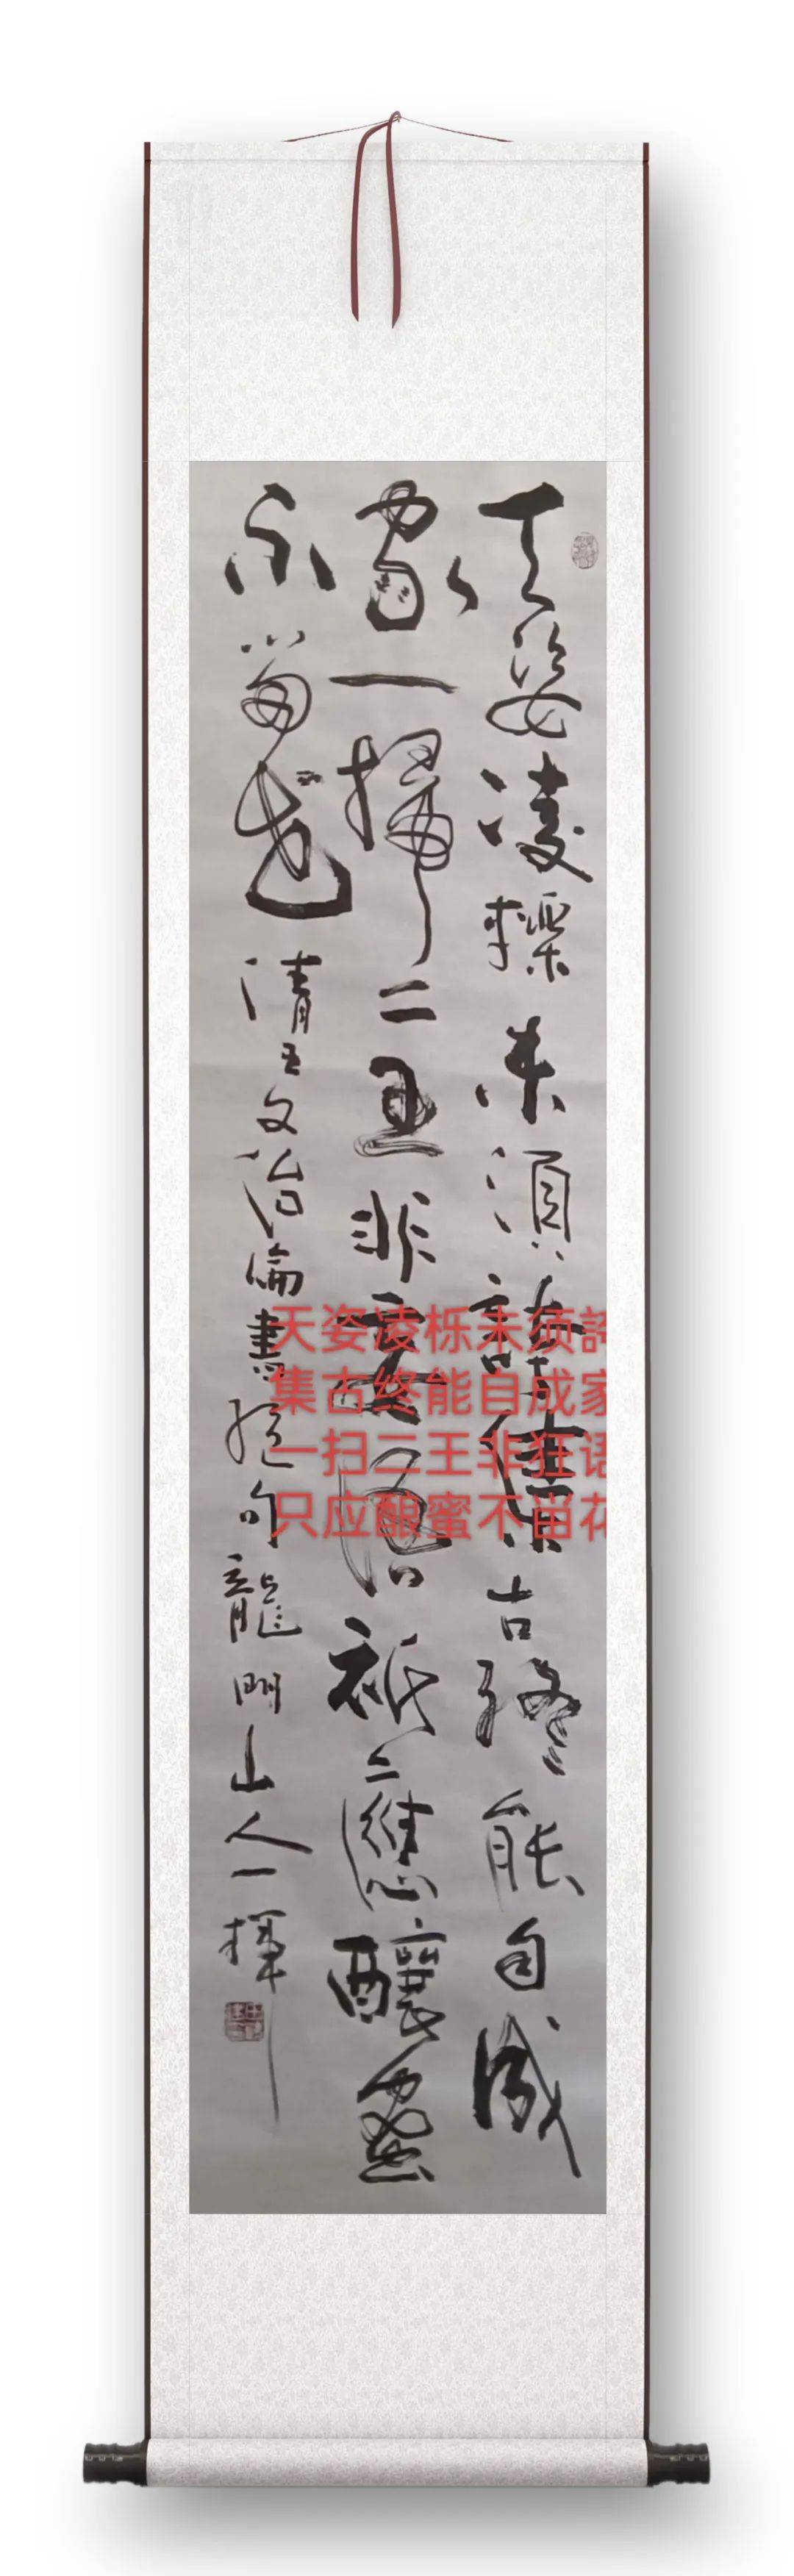 天姿凌轢未須誇集古終能自成
家一掃二王非語祗應釀蜜
不留花清王文治論書絕句龍門山人一揮
天姿凌栎未须誇
集古终能自成家
一扫二王非狂语
只应酿蜜不畄花